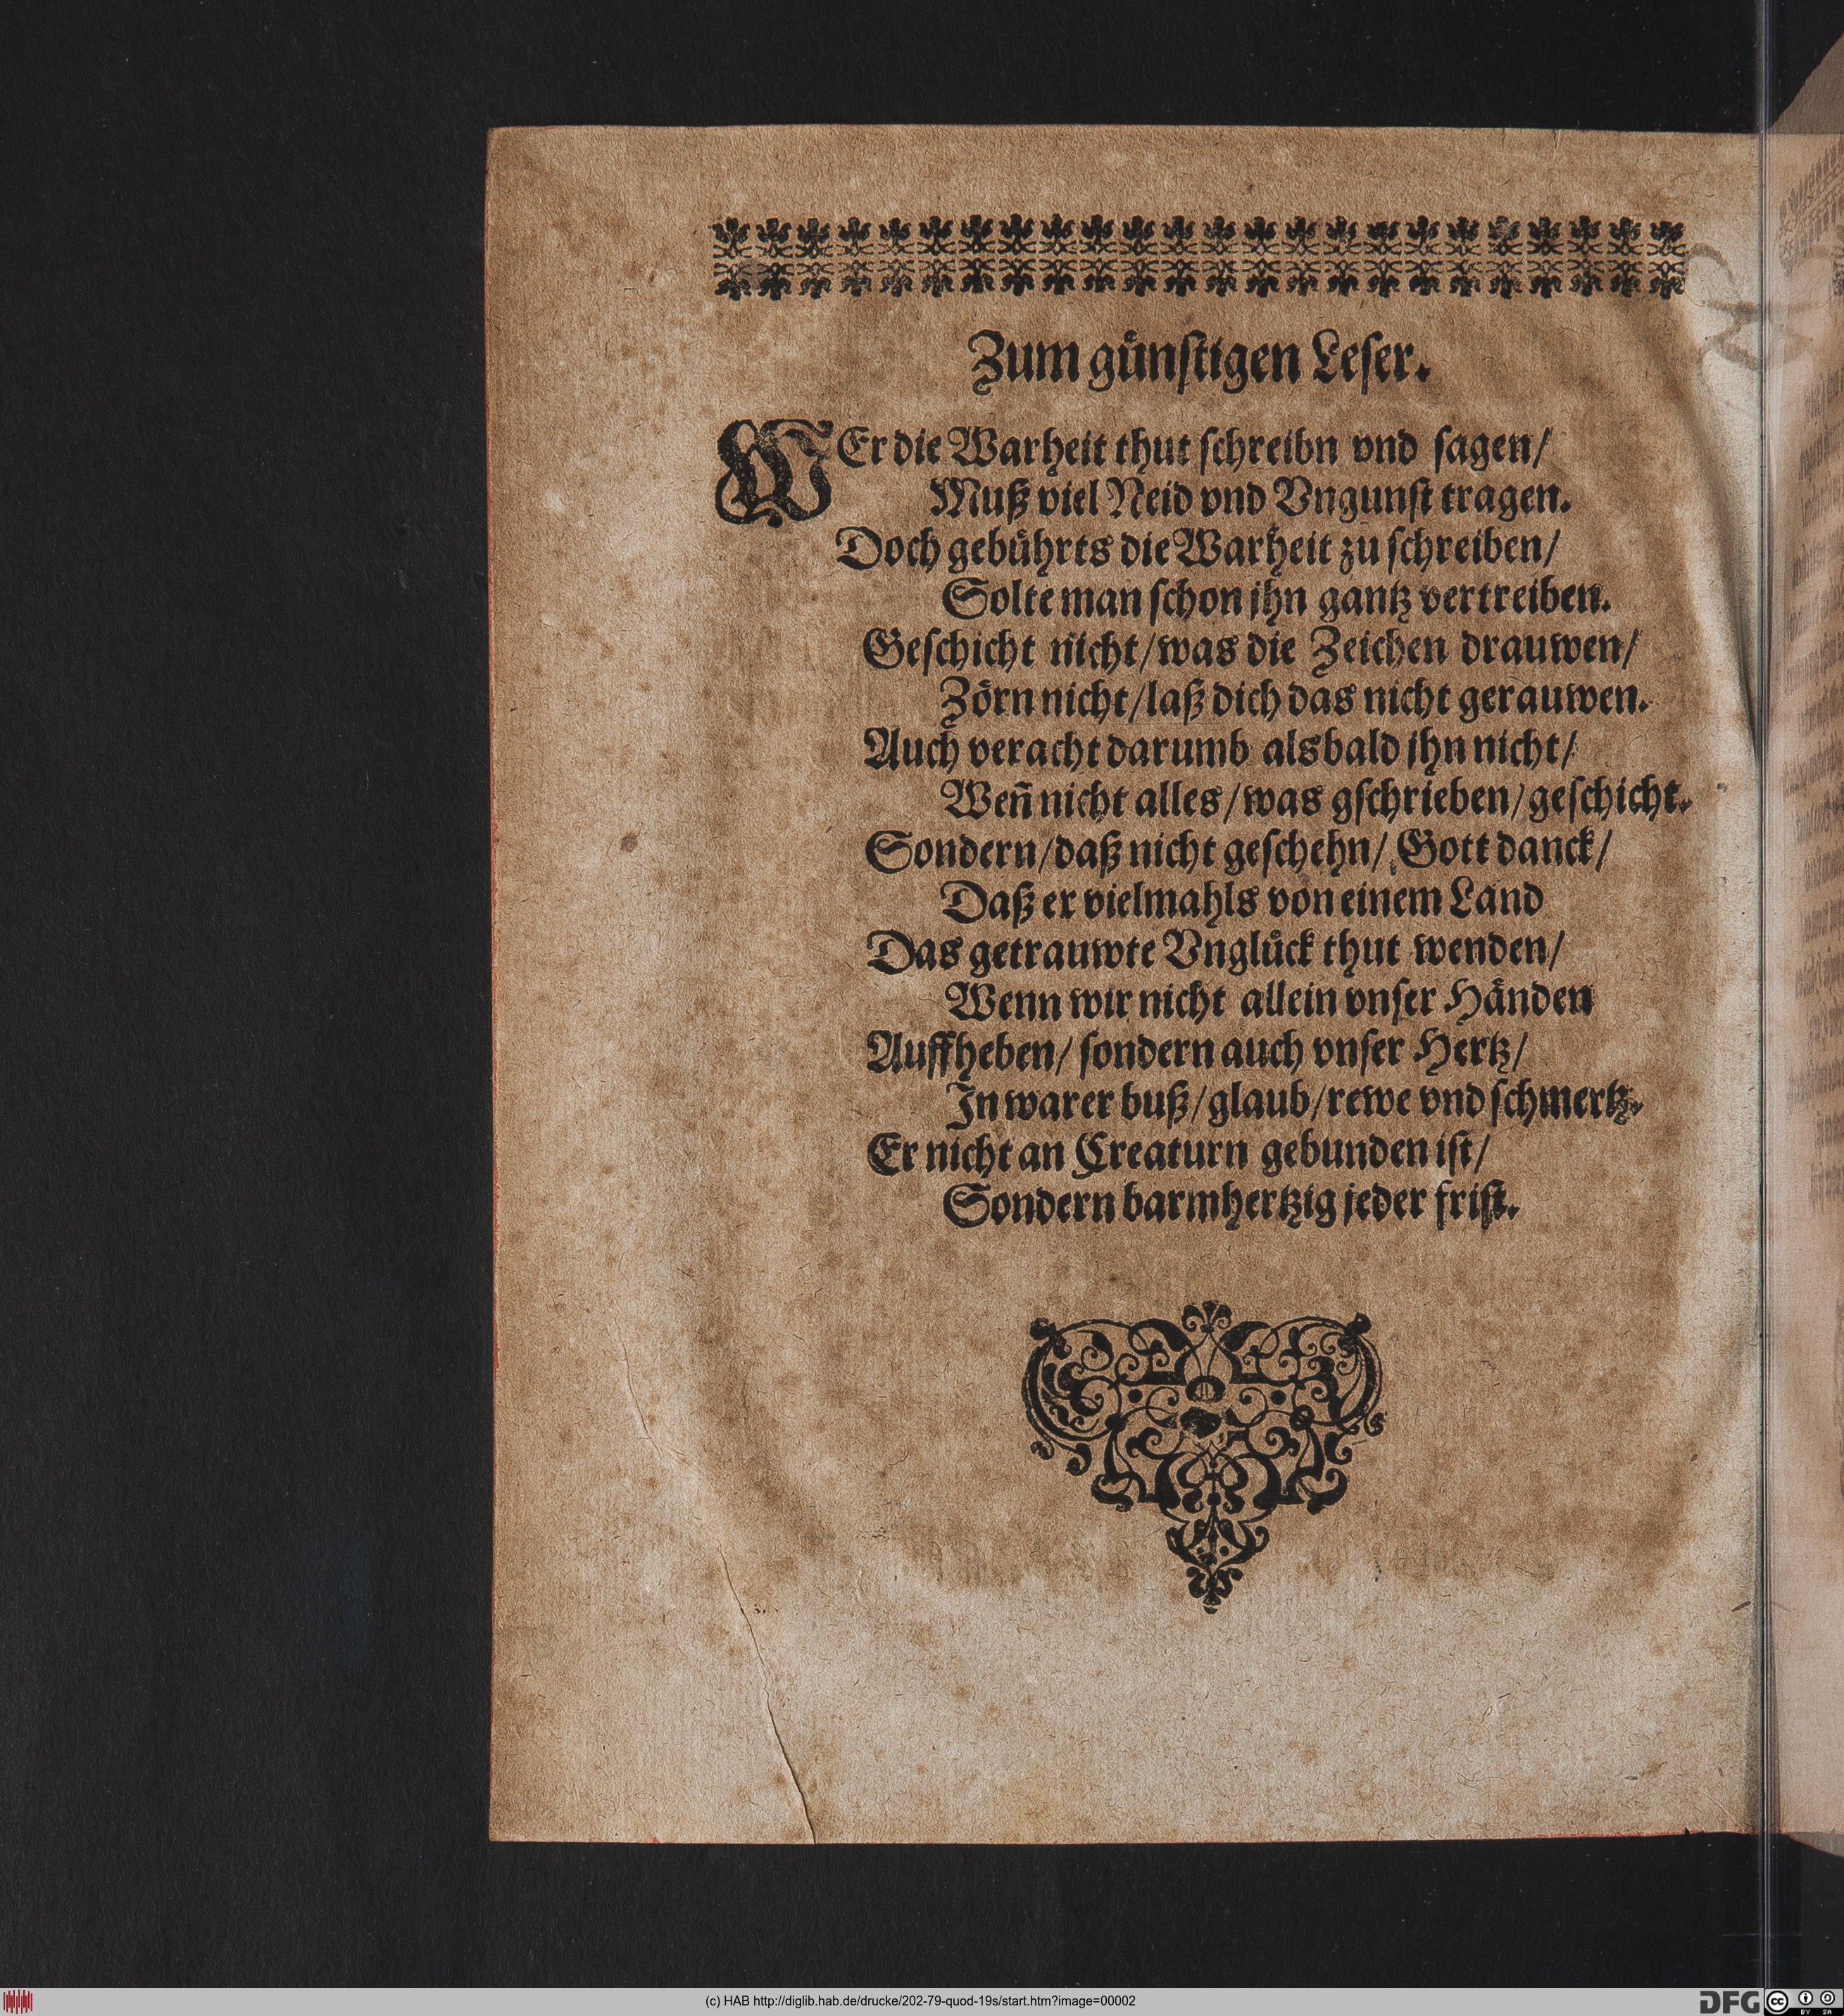 Zum guͤnſtigen Leſer.
WEr die Warheit thut ſchreibn vnd ſagen/
Muß viel Neid vnd Vngunſt tragen.
Doch gebuͤhrts die Warheit zu ſchreiben/
Solte man ſchon jhn gantz vertreiben.
Geſchicht nicht/was die Zeichen drauwen/
Zoͤrn nicht/laß dich das nicht gerauwen.
Auch veracht darumb alsbald jhn nicht/
Weñ nicht alles/was gſchrieben/geſchicht.
Sondern/daß nicht geſchehn/Gott danck/
Daß er vielmahls von einem Land
Das getrauwte Vngluͤck thut wenden/
Wenn wir nicht allein vnſer Haͤnden
Auffheben/ſondern auch vnſer Hertz/
In warer buß/glaub/rewe vnd ſchmertz.
Er nicht an Creaturn gebunden iſt/
Sondern barmhertzig jeder friſt.
(c) HAB http://diglib.hab.de/drucke/202-79-quod-19s/start.htm?image=00002
DFG
cc
BY SA